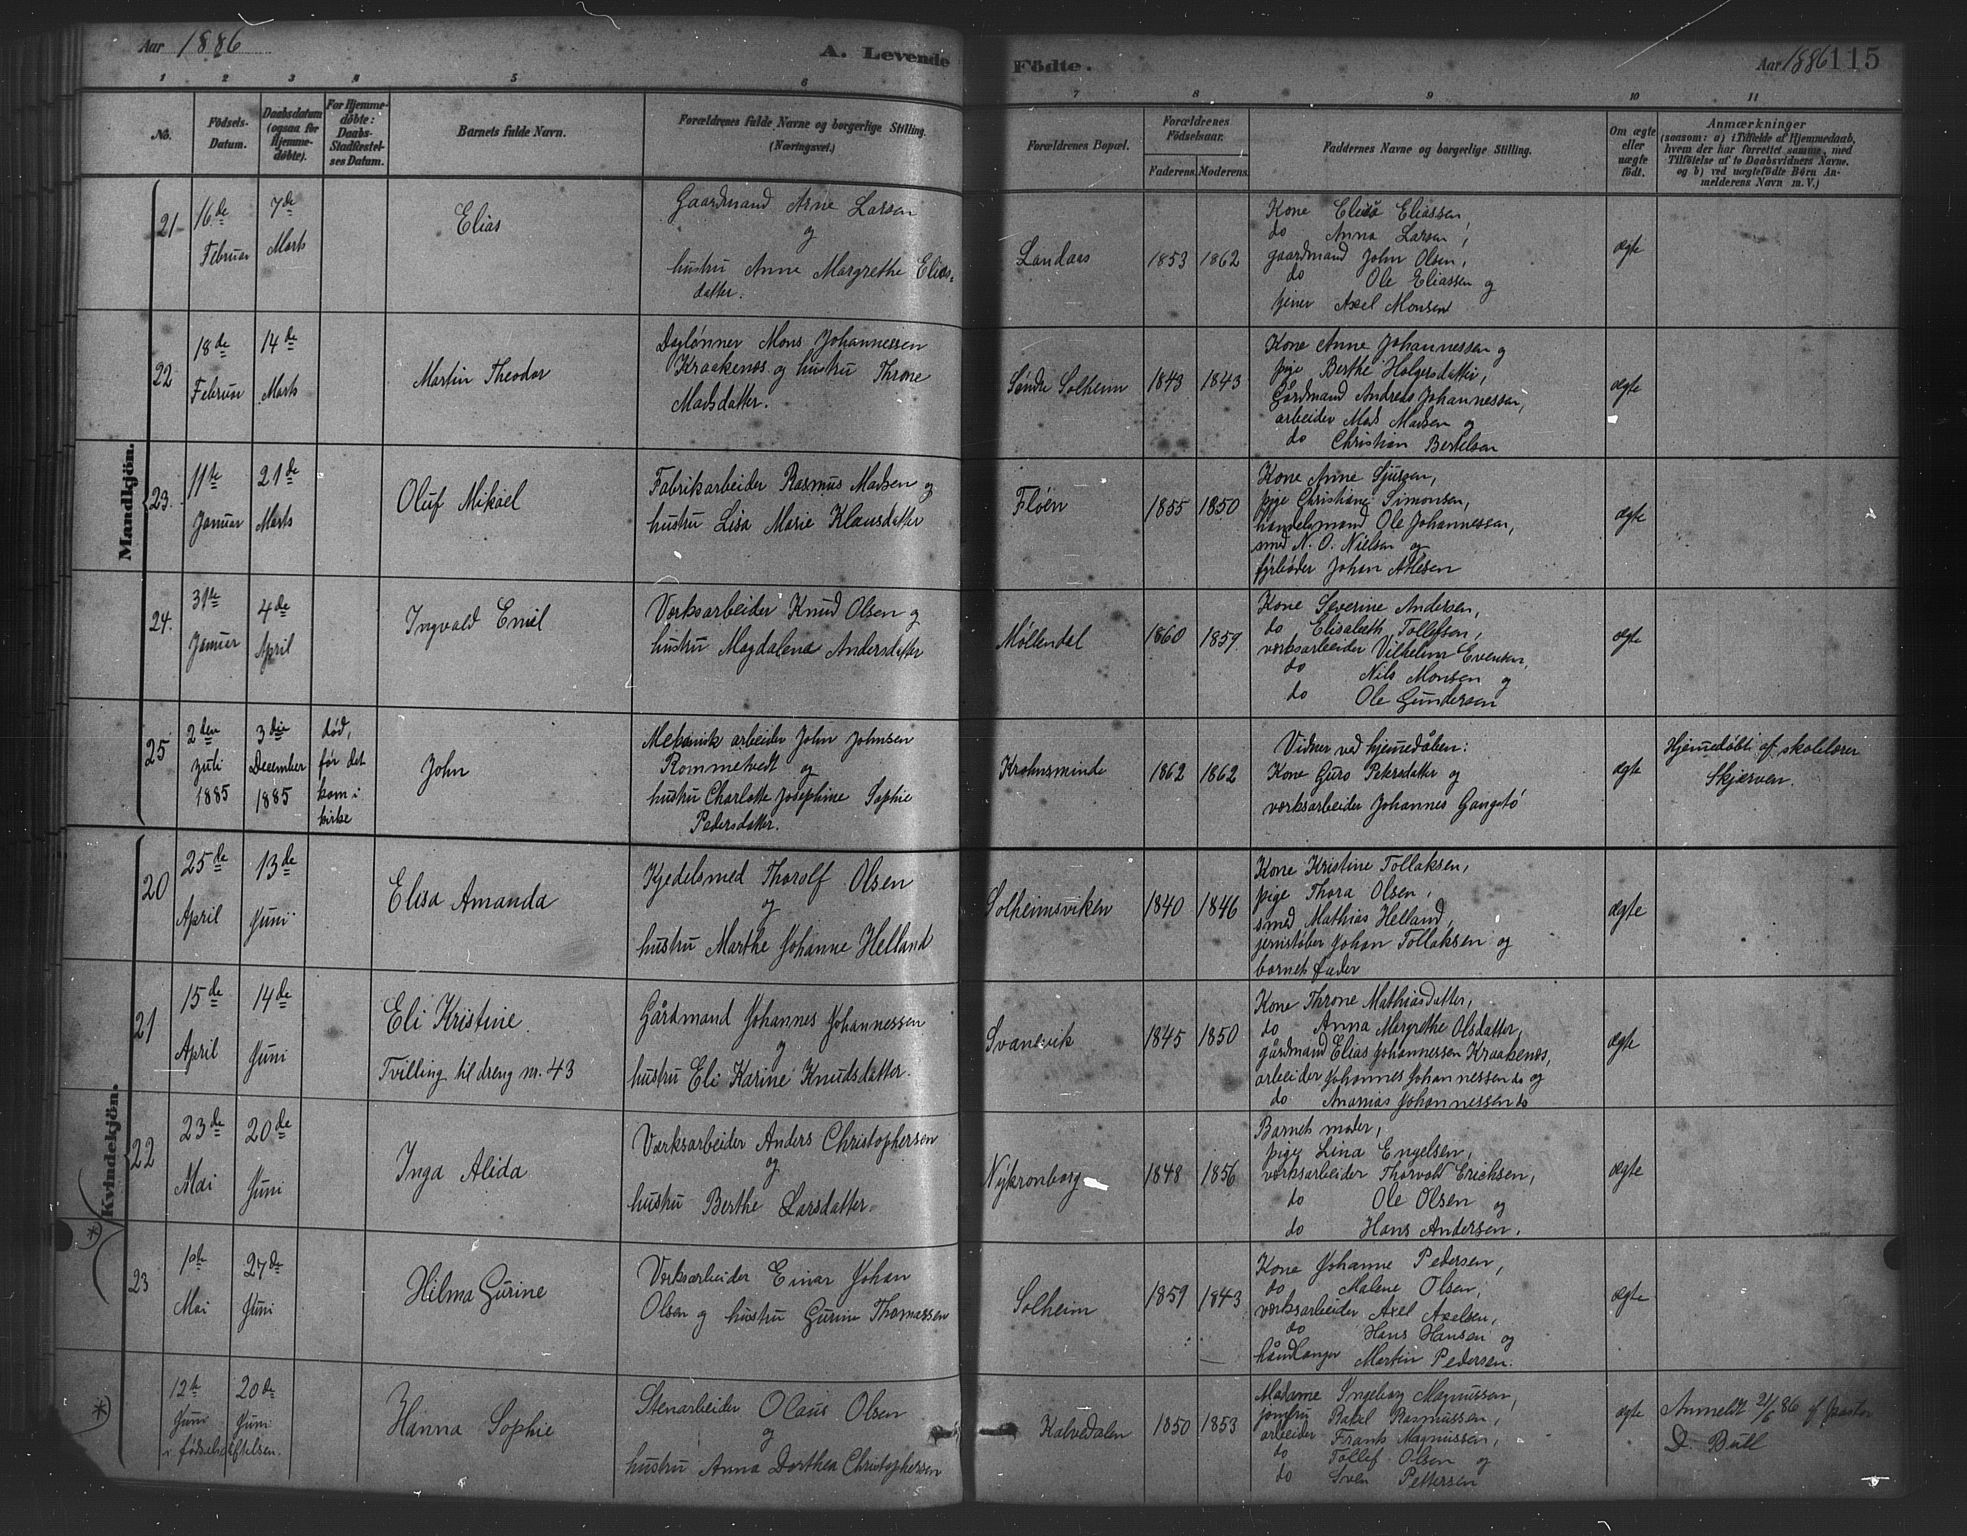 Aar 1886
A. Levende
Födte.
Aar 1886 115
1 2 3 4 5 6 7 8 9 10 11
No.
Födsels-
Datum.
Daabsdatum
(ogsaa for
Hjemme-
döbte).
For Hjemme-
döbte:
Daabs-
Stadfæstel-
ses Datum.
Barnets fulde Navn.
Forældrenes fulde Navne og borgerlige Stilling.
(Næringsvei.)
Forældrenes Bopæl.
Forældrenes
Födselsaar.
Faderens. Moderens.
Faddernes Navne og borgerlige Stilling.
Om ægte
eller
uægte
födt.
Anmærkninger
(saasom: a) i Tilfælde af Hjemmedaab,
hvem der har forrettet samme, med
Tilföielse af to Daabsvidners Navne.
og b) ved uægtefödte Börn An-
melderens Navn m. V.)
Mandkjön.
21
16de
Februar
7de
Marts
Elias
Gaardmand Arne Larsen
og
hustru Anne Margrethe Elias-
datter.
Landaas
1853
1862
Kone Elisa Eliassen
do Anna Larsen,
gaardmand John Olsen,
do Ole Eliassen og
tjener Axel Monsen
ægte
22
18de
Februar
14de
Marts
Martin Theodor
Daglønner Mons Johannessen
Kraakenes og hustru Throne
Madsdatter.
Søndre Solheim
1843
1843
Kone Anne Johannessen og
pige Berthe Holgersdatter,
Gårdmand Andreas Johannessen,
arbeider Mads Madsen og
do Christian Bertelsen
ægte
23.
11te
Januar
21de
Marts
Oluf Mikael
Fabrikarbeider Rasmus Madsen og
hustru Lisa Marie Klausdatter
Fløen
1855
1850
Kone Anne Sjursen,
pige Christiane Simonsen,
handelsmand Ole Johannessen,
smed N. O. Nielsen og
fyrbøder Johan Atlesen
ægte
24.
31te
Januar
4de
April
Ingvald Emil
Værksarbeider Knud Olsen og
hustru Magdalena Andersdatter
Møllendal
1860
1859.
Kone Severine Andersen,
do Elisabeth Tollefsen,
værksarbeider Vilhelm Evensen,
do Nils Monsen og
do Ole Gundersen
ægte
25
2den
Juli
1885
3die
December
1885
død,
før det
kom i
kirke
John
Mekanik arbeider John Johnsen
Rommetvedt og
hustru Charlotte Josephine Sophie
Pedersdatter.
Krohnsminde
1862
1862
Vidner ved hjemedåben:
Kone Guro Petersdatter og
værksarbeider Johannes Gangstø
ægte
Hjemedøbt af skolelærer
Skjerven.
Kvindekjön.
20
25de
April
13de
Juni
Elisa Amanda
Kjedelsmed Thorolf Olsen
og
hustru Marthe Johanne Helland
Solheimsviken
1840
1846
Kone Kristine Tollaksen,
pige Thora Olsen,
smed Mathias Helland,
jernstøber Johan Tollaksen og
barnets fader
ægte
21
15de
April
14de
Juni
Eli Kristine.
Tvilling til dreng nr. 43
Gårdmand Johannes Johannessen
og
hustru Eli Karine Knudsdatter.
Svanevik
1845
1850
Kone Throne Mathiasdatter,
do Anna Margrethe Olsdatter,
gårdmand Elias Johannessen Kraakenes,
arbeider Johannes Johannessen do og
do Ananias Johannessen do
ægte
22
23de
Mai
20de
Juni
Inga Alida
Værksarbeider Anders Christophersen
og
hustru Berthe Larsdatter.
Nykronborg
1848
1856
Barnets moder,
pige Lina Engelsen,
værksarbeider Thorvald Ericksen,
do Ole Olsen og
do Hans Andersen.
ægte
23
1ste
Mai
27de
Juni
Hilma Gurine
Værksarbeider Einar Johan
Olsen og hustru Gurine Thomassen
Solheim
1859
1843
Kone Johanne Pedersen,
do Malene Olsen,
værksarbeider Axel Axelsen,
do Hans Hansen og
håndlanger Martin Pedersen.
ægte
12te
Juni
20de
Juni
i fødselsstiftelsen.
Hanna Sophie
Stenarbeider Olaus Olsen
og
hustru Anna Dorthea Christophersen
Kalvedalen
1850
1853
Madame Ingeborg Magnussen,
jomfru Rakel Rasmussen,
arbeider Frants Magnussen,
do Tollef Olsen og
do Sven Pettersen
ægte
Anmeldt 21/6 86 af pastor
D. Bull